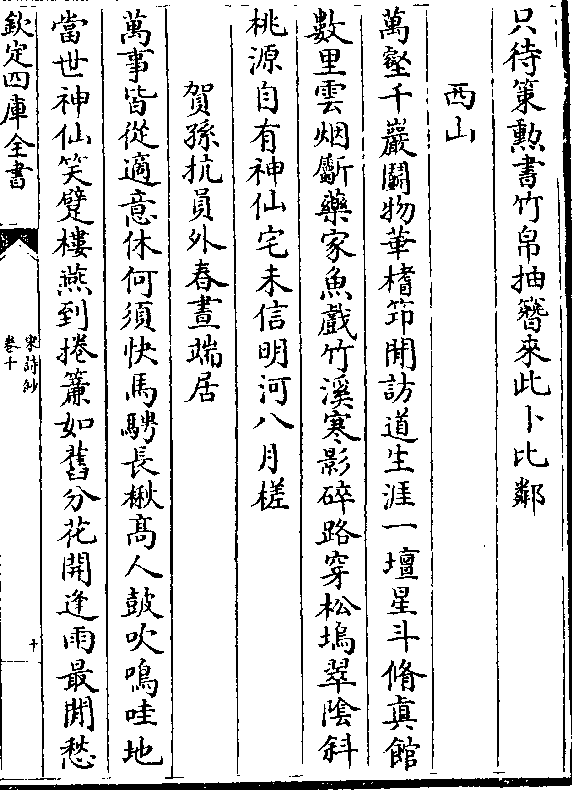 只待策勲書竹帛抽簪來此卜比鄰
西山
萬壑千巖鬭物華榰笻閒訪道生涯一壇星斗脩真館
數里雲烟斸藥家魚戲竹溪寒影碎路穿松塢翠陰斜
桃源自有神仙宅未信明河八月槎
賀孫抗員外春晝端居
萬事皆從適意休何須快馬騁長楸髙人鼓吹鳴哇地
當世神仙笑躄樓燕到捲簾如舊分花開逢雨最閒愁
欽定四庫全書
宋詩鈔
卷十
十